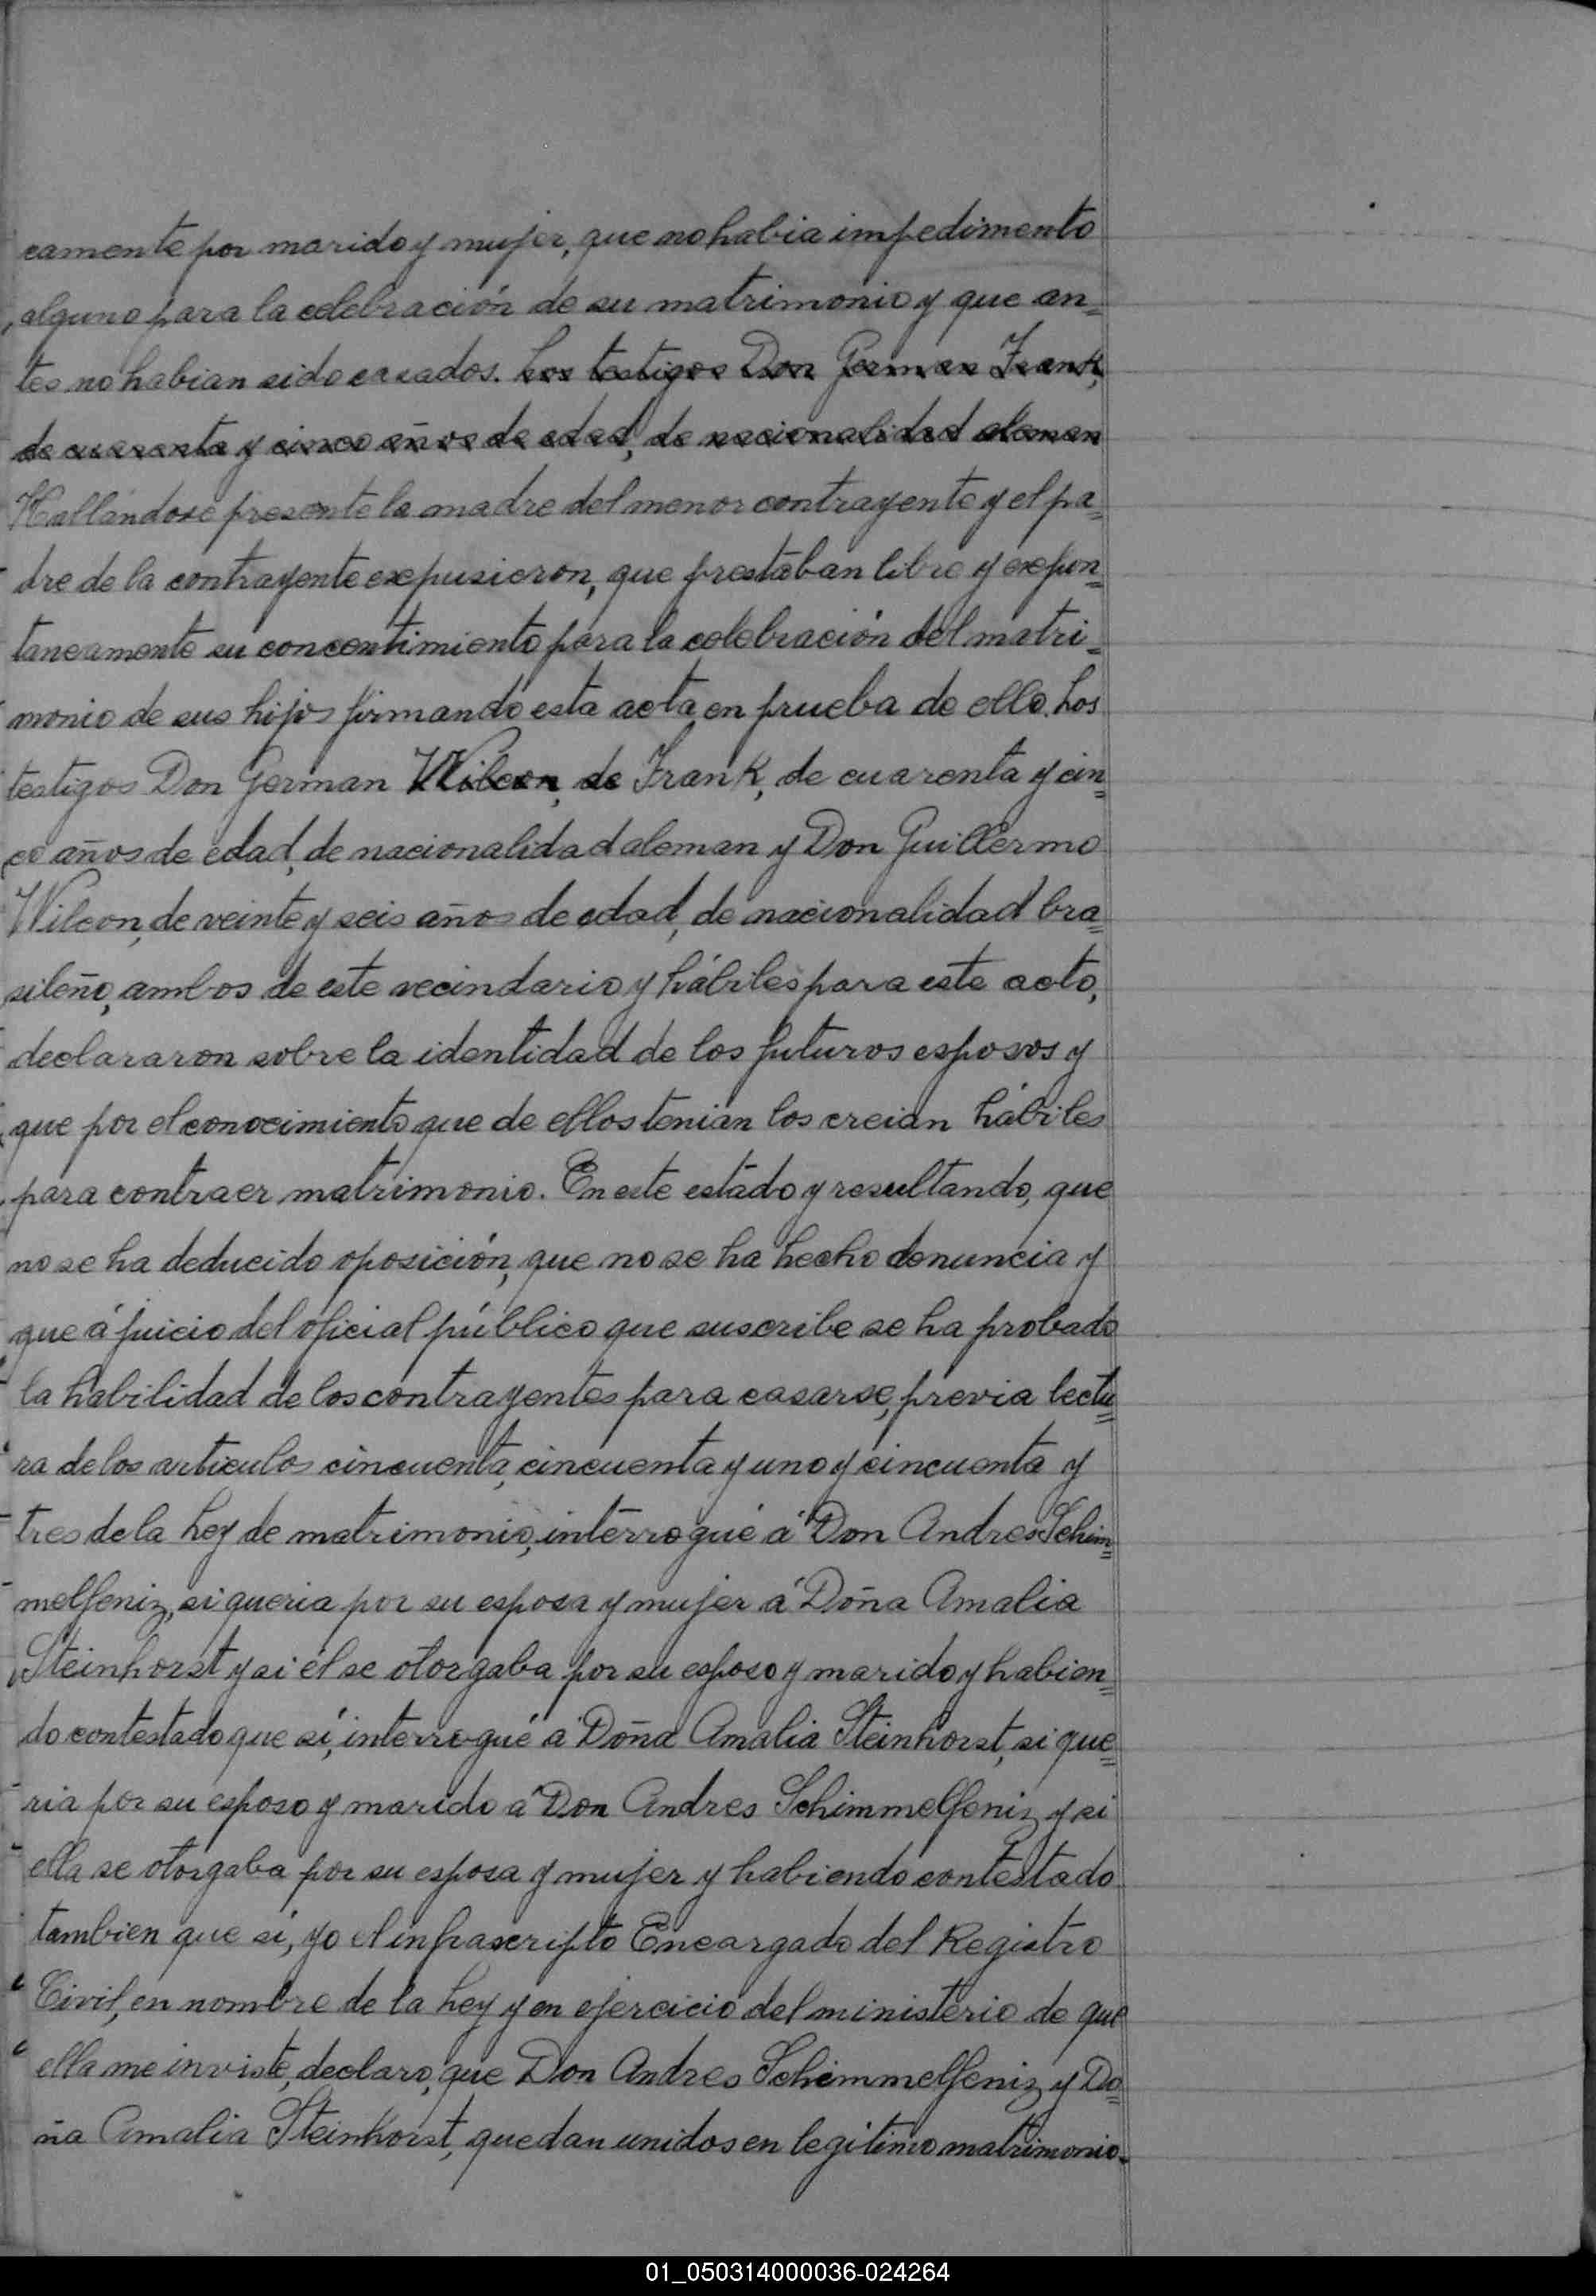 camente por marido y mujer, que no habia impedimento
alguno para la celebración de su matrimonio y que an=
tes no habian sido casados. Los testigos Don German Frank,
de cuarenta y cinco años de edad, de nacionalidad aleman
Hallándose presente la madre del menor contrayente y el pa=
dre de la contrayente expusieron, que prestaban libre y expon=
taneamente su concentimiento para la celebración del matri=
monio de sus hijos firmando esta acta en prueba de ello. Los
testigos Don German Wilson, de Frank, de cuarenta y cin=
co años de edad, de nacionalidad aleman y Don Guillermo
Wilson, de veinte y seis años de edad, de nacionalidad bra=
sileño, ambos de este vecindario y hábiles para este acto,
declararon sobre la identidad de los futuros esposos y
que por el conocimiento que de ellos tenian los creian hábiles
para contraer matrimonio. En este estado y resultando, que
no se ha deducido oposición, que no se ha hecho denuncia y
que á juicio del oficial público que suscribe se ha probado
la habilidad de los contrayentes para casarse, previa lectu=
ra de los articulos cincuenta, cincuenta y uno y cincuenta y
tres de la Ley de matrimonio, interrogué á Don Andres Schim=
melfeniz, si queria por su esposa y mujer á Doña Amalia
Steinhorst y si él se otorgaba por su esposo y marido y habien=
do contestado que sí, interrogué a Doña Amalia Steinhorst, si que=
ria por su esposo y marido á Don Andres Schimmelfeniz y si
ella se otorgaba por su esposa y mujer y habiendo contestado
tambien que sí, yo el infrascripto Encargado del Registro
Civil, en nombre de la Ley y en ejercicio del ministerio de que
ella me inviste, declaro, que Don Andres Schimmelfeniz y Do=
ña Amalia Steinhorst, quedan unidos en legitimo matrimonio.
01_050314000036-024264